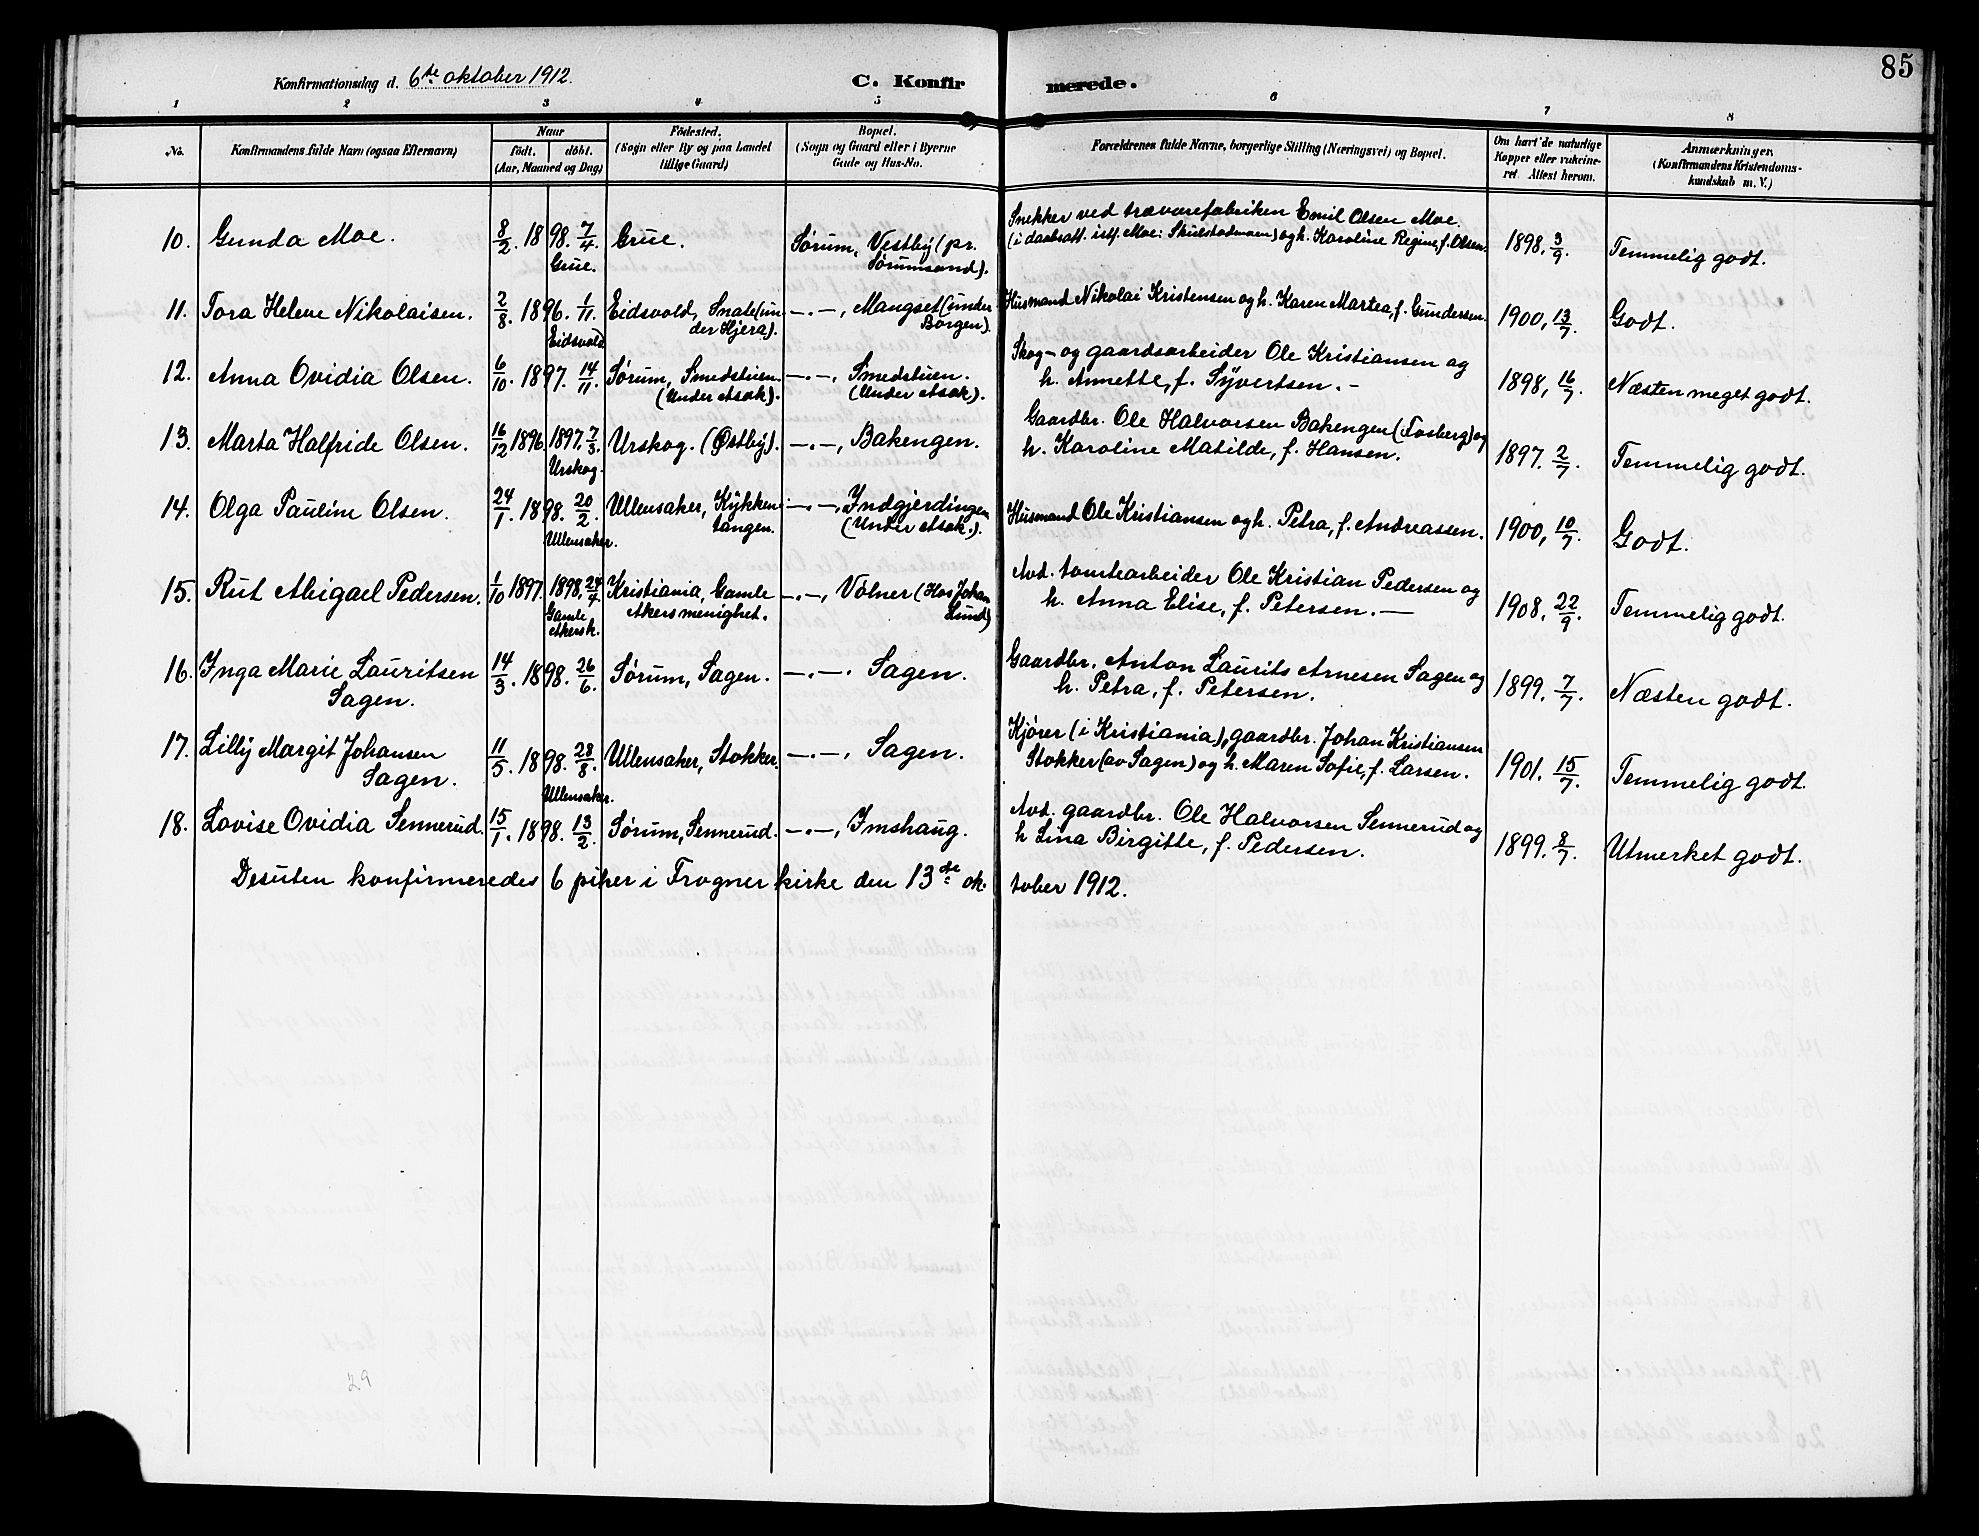 85
Konfirmationsdag d. 6te oktober 1912.
C. Konfirmerede.
1 2 3 4 5 6 7 8
No. Konfirmandens fulde Navn (ogsaa Efternavn) Naar født. døbt. (Aar, Maaned og Dag) Fødested. (Sogn eller By og paa Landet tillige Gaard) Bopæl. (Sogn og Gaard eller i Byerne Gade og Hus-No. Forældrenes fulde Navne, borgerlige Stilling (Næringsvei) og Bopæl. Om havt de naturlige Kopper eller vakcineret. Attest herom. Anmærkninger, (Konfirmandens Kristendomskundskab m. V.)
10. Gunda Moe. 8/2. 1898. 7/4. Grue. Grue. Sørum, Vestby (pr. Sørumsand). Snekker ved trævarefabriken Emil Olsen Moe
(i daabsatt. istf. Moe: Skulstadmoen) og h. Karoline Regine, f. Olsen. 1898. 3/9. Temmelig godt.
11. Tora Helene Nikolaisen. 2/8. 1896. 1/11. Eidsvold Eidsvold, Snate (under Hjera). -.-, Mangset (under Borgen). Husmand Nikolai Kristensen og h. Karen Martea, f. Gundersen. 1900, 13/7. Godt.
12. Anna Ovidia Olsen. 6/10. 1897. 14/11. Sørum, Smedstuen. (Under Asak). -.-, Smedstuen. (Under Asak). Skog- og gaardsarbeider Ole Kristiansen og
h. Annette, f. Syvertsen. - 1898, 16/7. Næsten meget godt.
13. Marta Halfride Olsen. 16/12 1896. 1897. 7/3. Urskog. Urskog. (Østby). -.-, Bakengen. Gaardbr. Ole Halvorsen Bakengen (Fosberg) og
h. Karoline Matilde, f. Hansen. 1897. 2/7. Temmelig godt.
14. Olga Pauline Olsen. 24/1. 1898. 20/2. Ullensaker. Ullensaker, Kykkentangen. -.-, Indgjerdingen (Under Asak.). Husmand Ole Kristiansen og h. Petra, f. Andreassen. 1900, 10/7. Godt.
15. Rut Abigael Pedersen. 1/10 1897. 1898, 24/4. Gamle Akersk. Kristiania, Gamle Akers menighet. -.-, Vølner (Hos Johan Lund) Avd. tomtearbeider Ole Kristian Pedersen og
h. Anna Elise, f. Petersen. - 1908. 22/9. Temmelig godt.
16. Inga Marie Lauritsen Sagen. 14/3. 1898. 26/6. Sørum, Sagen. -.-. Sagen. Gaardbr. Anton Laurits Arnesen Sagen og
h. Petra, f. Petersen. 1899. 7/7. Næsten godt.
17. Lilly Margit Johansen Sagen. 11/5. 1898. 28/8. Ullensaker. Ullensaker, Stokker. -.-, Sagen. Kjører (i Kristiania), gaardbr. Johan Kristiansen
Stokker (av Sagen) og h. Maren Sofie, f. Larsen. 1901. 15/7. Temmelig godt.
18. Lovise Ovidia Sennerud. 15/1. 1898. 13/2. Sørum, Sennerud. -.-, Imshaug. Avd. gaardbr. Ole Halvorsen Sennerud og
h Lina Birgitte, f. Pedersen. 1899. 8/7. Utmerket godt.
Desuten konfirmeredes 6 piker i Frogner kirke den 13de oktober 1912.
29